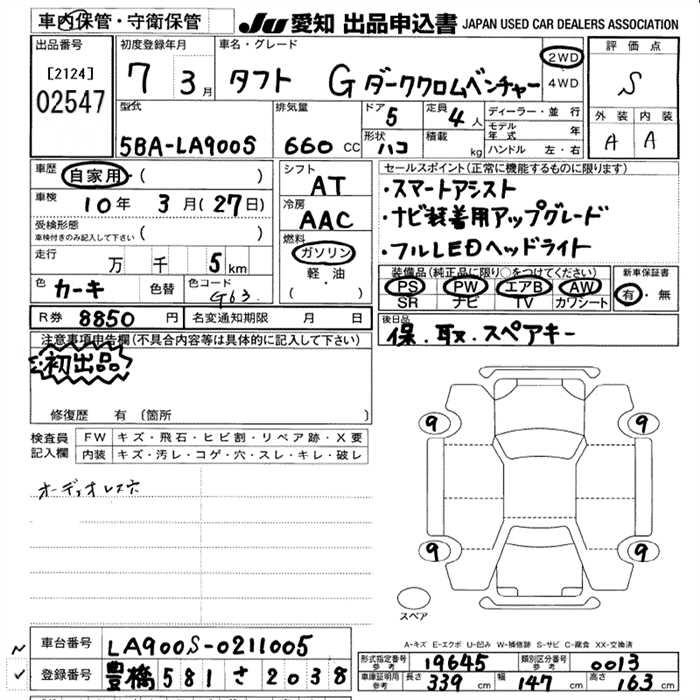 車内保管・守衛保管
JU 愛知 出品申込書 JAPAN USED CAR DEALERS ASSOCIATION
出品番号
[2124]
02547
初度登録年月
7 3月
車名・グレード
タフト G ダーククロムベンチャー
2WD
4WD
評価点
S
外装 内装
A A
型式
5BA-LA900S
排気量
660 CC
ドア
5
定員
4人
形状
ハコ
積載
kg
ディーラー・並行
モデル年式 年
ハンドル 左・右
車歴
自家用・( )
車検
10年 3月(27日)
受検形態
車検付きのみ記入して下さい ( )
走行
万 千 5 km
色
カーキ
色替
色コード
G63
シフト
AT
冷房
AAC
燃料
ガソリン
軽・油
( ・ )
セールスポイント(正常に機能するものに限ります)
・スマートアシスト
・ナビ装着用アップグレード
・フルLEDヘッドライト
装備品(純正品に限り○をつけてください)
PS PW エアB AW
SR ナビ TV カワシート
新車保証書
有・無
R券 8850 円
名変通知期限 月 日
後日品
保.取.スペアキー
注意事項申告欄(不具合内容等は具体的に記入して下さい)
初出品
修復歴 有 (箇所 )
検査員
記入欄
FW キズ・飛石・ヒビ割・リペア跡・X要
内装 キズ・汚レ・コゲ・穴・スレ・キレ・破レ
オーディオレス穴
9 9
9 9
スペア
A-キズ E-エクボ U-凹み W-補修跡 S-サビ C-腐食 XX-交換済
車台番号 LA900S-0211005
登録番号 豊橋 581 さ 2038
形式指定番号
参考
19645
類別区分番号
参考
0013
車庫証明用
参考
長さ 339 cm 幅 147 cm 高さ 163 cm